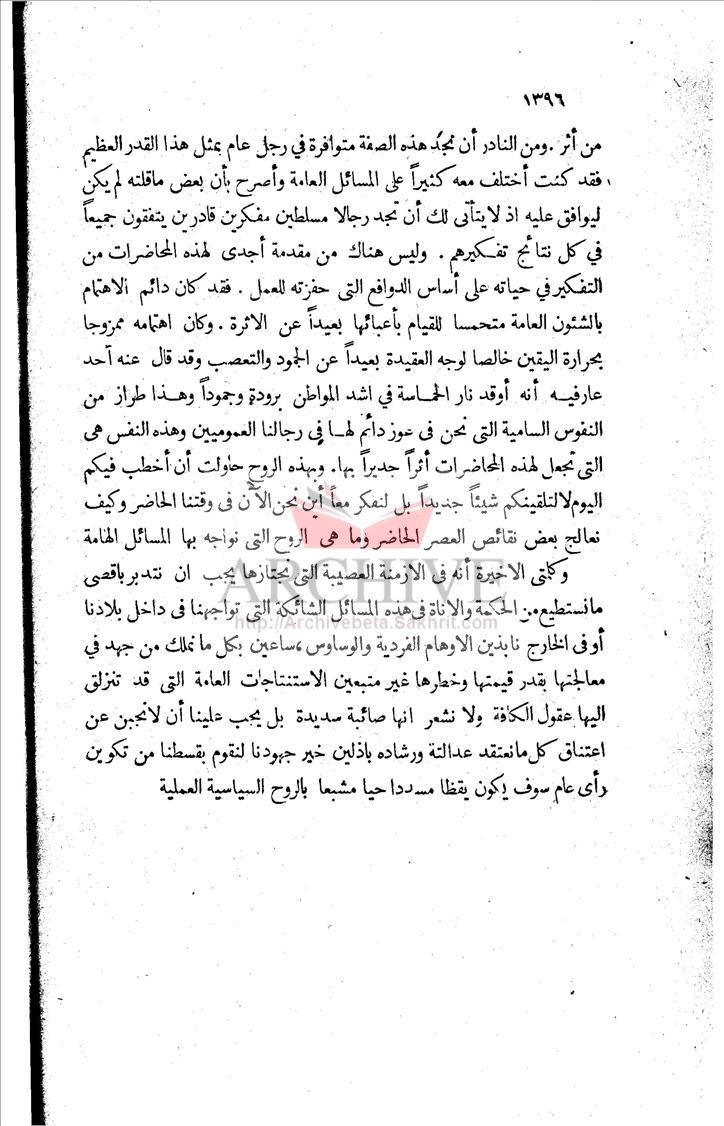 ١٣٩٦
من أثر . ومن النادر أن تجد هذه الصفة متوافرة في رجل عام بمثل هذا القدر العظيم
فقد كنت أختلف معه كثيراً على المسائل العامة وأصرح بأن بعض ماقلته لم يكن
ليوافق عليه اذ لا يتأتى لك أن تجد رجالا مسلطين مفكرين قادرين يتفقون جميعاً
في كل نتائج تفكيرهم . وليس هناك من مقدمة أجدى لهذه المحاضرات من
التفكير في حياته على أساس الدوافع التى حفزته للعمل . فقد كان دائم الاهتمام
بالشئون العامة متحمسا للقيام بأعبائها بعيداً عن الاثرة . وكان اهتمامه ممزوجا
بحرارة اليقين خالصا لوجه العقيدة بعيداً عن الجمود والتعصب وقد قال عنه أحد
عارفيه أنه أوقد نار الحماسة في اشد المواطن برودة وجموداً وهذا طراز من
النفوس السامية التى نحن فى عوز دائم لها في رجالنا العموميين وهذه النفس هى
التى تجعل لهذه المحاضرات أثراً جديراً بها. وبهذه الروح حاولت أن أخطب فيكم
اليوم لالتلقينكم شيئاً جديداً بل لنفكر معاً أين نحن الآن فى وقتنا الحاضر وكيف
نعالج بعض نقائص العصر الحاضر وما هى الروح التى نواجه بها المسائل الهامة
وكلمتى الاخيرة أنه فى الازمنة العصيبة التى نجتازها يجب ان نتدبر باقصى
مانستطيع من الحكمة والاناة فى هذه المسائل الشائكة التى تواجهنا فى داخل بلادنا
أو فى الخارج نابذين الاوهام الفردية والوساوس ،ساعين بكل ما نملك من جهد في
معالجتها بقدر قيمتها وخطرها غير متبعين الاستنتاجات العامة التى قد تنزلق
اليها عقول الكافة ولا نشعر انها صائبة سديدة بل يجب علينا أن لانجبن عن
اعتناق كل مانعتقد عدالتة ورشاده باذلين خير جهودنا لنقوم بقسطنا من تكوين
رأى عام سوف يكون يقظا مسددا حيا مشبعا بالروح السياسية العملية
ARCHIVE
http://Archivebeta.Sakhrit.com